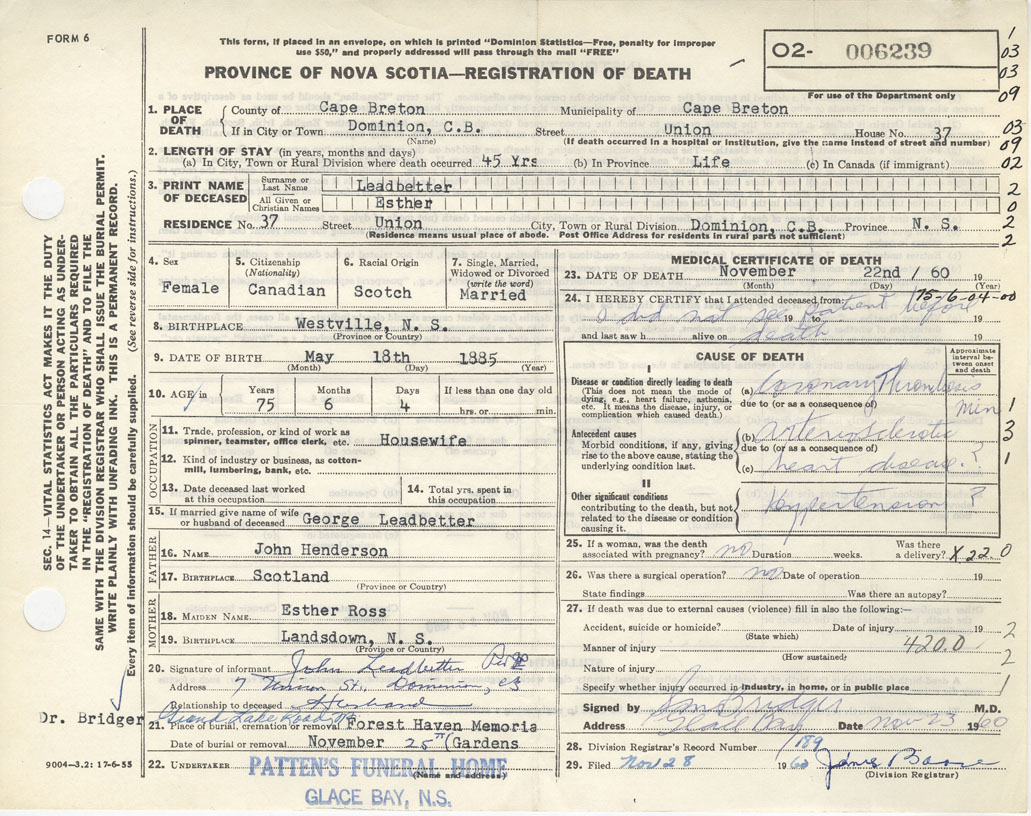 FORM 6
This form, if placed in an envelope, on which is printed "Dominion Statistics—Free, penalty for improper
use $50," and properly addressed will pass through the mail "FREE"
PROVINCE OF NOVA SCOTIA—REGISTRATION OF DEATH
02- 006239
For use of the Department only
1
03
03
09
03
09
02
2
0
2
2
1. PLACE OF DEATH
County of Cape Breton Municipality of Cape Breton
If in City or Town Dominion, C.B. Street Union House No. 37
(Name) (If death occurred in a hospital or institution, give the name instead of street and number)
2. LENGTH OF STAY (in years, months and days)
(a) In City, Town or Rural Division where death occurred 45 Yrs (b) In Province Life (c) In Canada (if immigrant)
3. PRINT NAME OF DECEASED
Surname or Last Name Leadbetter
All Given or Christian Names Esther
RESIDENCE No. 37 Street Union City, Town or Rural Division Dominion, C.B. Province N. S.
(Residence means usual place of abode. Post Office Address for residents in rural parts not sufficient)
4. Sex
Female
5. Citizenship
(Nationality)
Canadian
6. Racial Origin
Scotch
7. Single, Married,
Widowed or Divorced
(write the word)
Married
8. BIRTHPLACE Westville, N. S.
(Province or Country)
9. DATE OF BIRTH May 18th 1885
(Month) (Day) (Year)
10. AGE in
Years Months Days If less than one day old
75 6 4 hrs. or min.
OCCUPATION
11. Trade, profession, or kind of work as
spinner, teamster, office clerk, etc. Housewife
12. Kind of industry or business, as cotton-
mill, lumbering, bank, etc.
13. Date deceased last worked
at this occupation
14. Total yrs. spent in
this occupation
15. If married give name of wife
or husband of deceased George Leadbetter
FATHER
16. NAME John Henderson
17. BIRTHPLACE Scotland
(Province or Country)
MOTHER
18. MAIDEN NAME Esther Ross
19. BIRTHPLACE Landsdown, N. S.
(Province or Country)
20. Signature of informant John Leadbetter
Address 7 Union St., Dominion, CB
Relationship to deceased Husband
Grand Lake Road
21. Place of burial, cremation or removal Forest Haven Memoria
Date of burial or removal November 25th (Gardens
22. UNDERTAKER PATTEN'S FUNERAL HOME
(Name and address)
GLACE BAY, N.S.
MEDICAL CERTIFICATE OF DEATH
23. DATE OF DEATH November 22nd / 60 19
(Month) (Day) (Year)
75-6-04-00
24. I HEREBY CERTIFY that I attended deceased from:
I did not see patient before 19 to 19
and last saw h alive on death 19
CAUSE OF DEATH
Approximate
interval be-
tween onset
and death
I
Disease or condition directly leading to death
(This does not mean the mode of
dying, e.g., heart failure, asthenia,
etc. It means the disease, injury, or
complication which caused death.)
(a) Coronary Thrombosis
due to (or as a consequence of) min
1
Antecedent causes
Morbid conditions, if any, giving
rise to the above cause, stating the
underlying condition last.
(b) Arteriosclerotic
3
due to (or as a consequence of)
(c) heart disease. ?
1
II
Other significant conditions
contributing to the death, but not
related to the disease or condition
causing it.
Hypertension ?
25. If a woman, was the death
associated with pregnancy? no Duration weeks. Was there
a delivery? X 22.0
26. Was there a surgical operation? no Date of operation 19
State findings Was there an autopsy?
27. If death was due to external causes (violence) fill in also the following:—
Accident, suicide or homicide? Date of injury 19 2
(State which)
Manner of injury 420.0 2
(How sustained)
Nature of injury
Specify whether injury occurred in industry, in home, or in public place 1
Signed by Bridger M.D.
Address Glace Bay Date Nov 23 1960
28. Division Registrar's Record Number 189
29. Filed Nov 28 1960 James Boone
(Division Registrar)
SEC. 14—VITAL STATISTICS ACT MAKES IT THE DUTY
OF THE UNDERTAKER OR PERSON ACTING AS UNDER-
TAKER TO OBTAIN ALL THE PARTICULARS REQUIRED
IN THE "REGISTRATION OF DEATH" AND TO FILE THE
SAME WITH THE DIVISION REGISTRAR WHO SHALL ISSUE THE BURIAL PERMIT.
WRITE PLAINLY WITH UNFADING INK. THIS IS A PERMANENT RECORD.
Every item of information should be carefully supplied. (See reverse side for instructions.)
Dr. Bridger
9004—3.2: 17-6-55